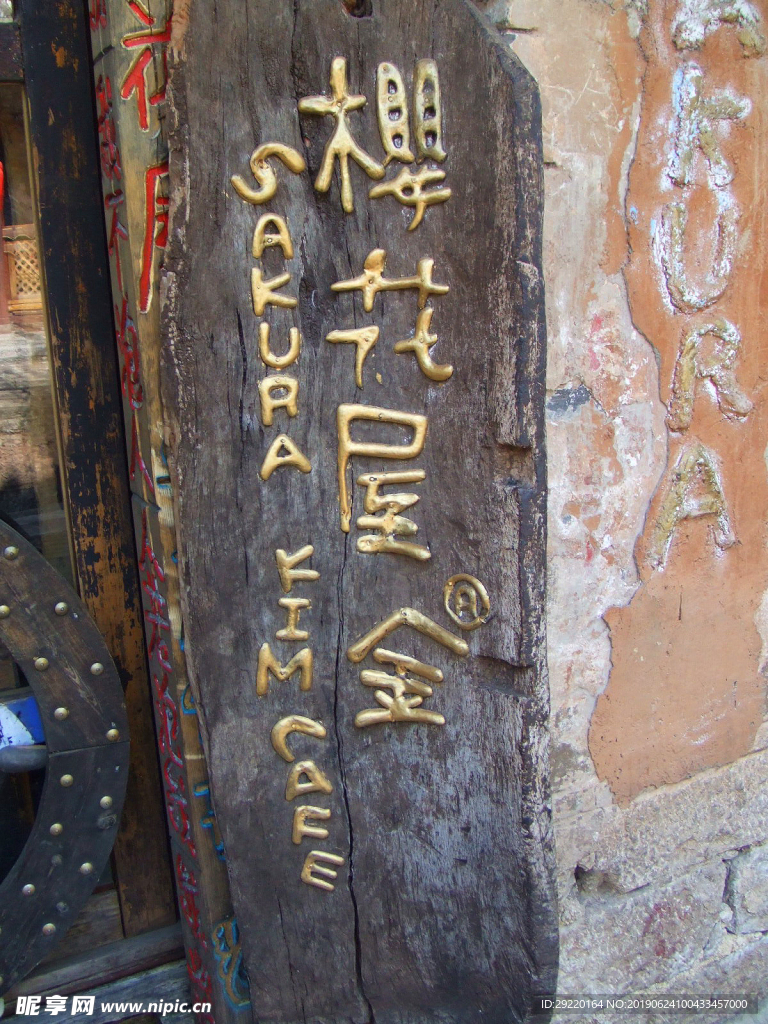 櫻花屋金
A
SAKURA KIM CAFE
KURA
昵享网 www.nipic.cn
ID:29220164 NO:20190624100433457000